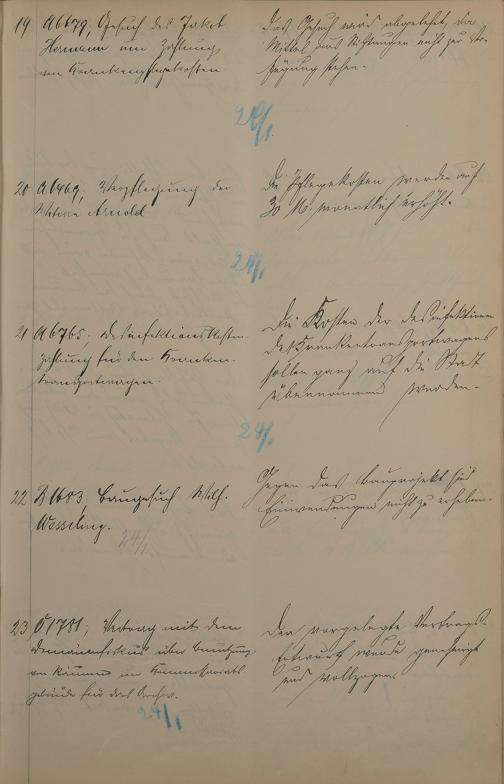 19 A 6679, Gesuch des Jakob
Hermann um Zahlung
von Krankenpflegekosten
Das Gesuch wird abgelehnt, da
Mittel aus Stiftungen nicht zur Ver-
fügung stehen.
24/1.
20 A 6469, Verpflegung der
Witwe Arnold
Die Pflegekosten werden auf
30 M. monatlich erhöht.
24/1.
21 A 6765; Desinfektionskosten-
zahlung für den Kranken-
transportwagen.
Die Kosten der Desinfektion
des Krankentransportwagens
sollen ganz auf die Stadt
übernommen werden.
24/1.
22 B 1683; Baugesuch Wilh.
Wesseling.
24/1
Gegen das Bauprojekt sind
Einwendungen nicht zu erheben.
23 O 1781; Vertrag mit dem
Domänenfiskus über Benutzung
von Räumen im
gebäude für das Archiv.
Der vorgelegte Vertrags-
Entwurf wurde genehmigt
und vollzogen.
24/1